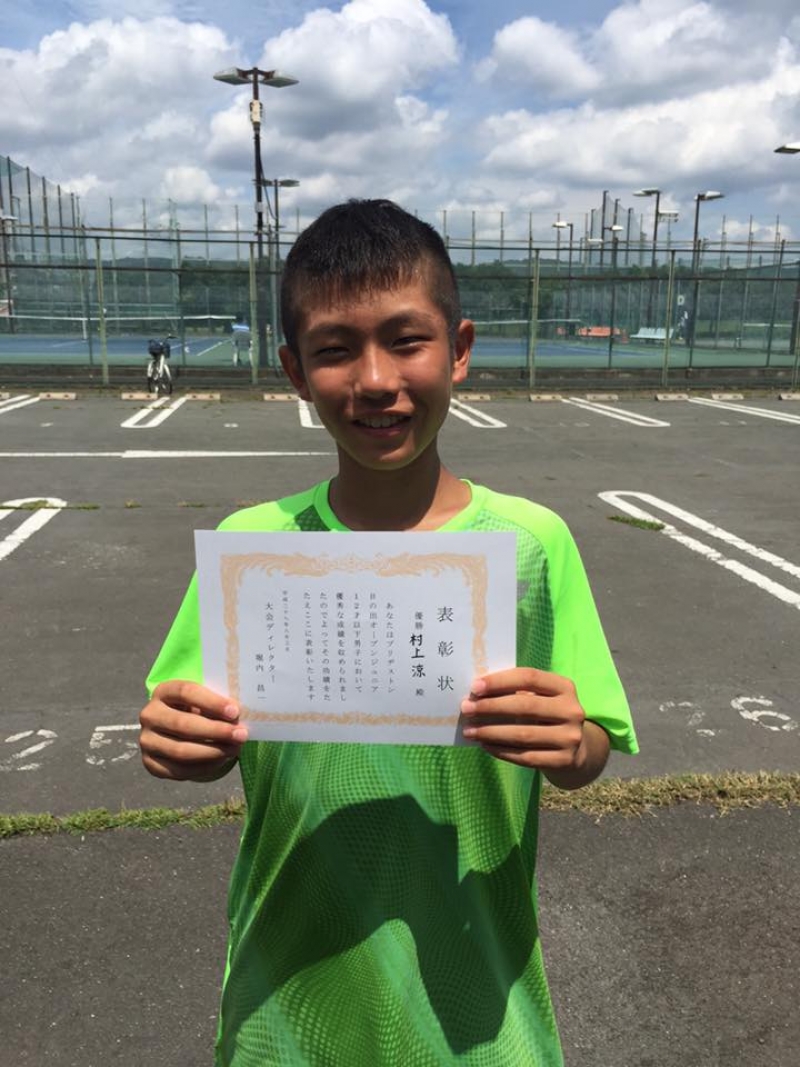 表彰状
優勝 村上 涼 殿
あなたはブリヂストン
日の出オープンジュニア
12才以下男子において
優秀な成績を収められまし
たのでよってその功績をた
たえここに表彰いたします
平成二十八年八月
大会ディレクター
堀内 昌一
25
26